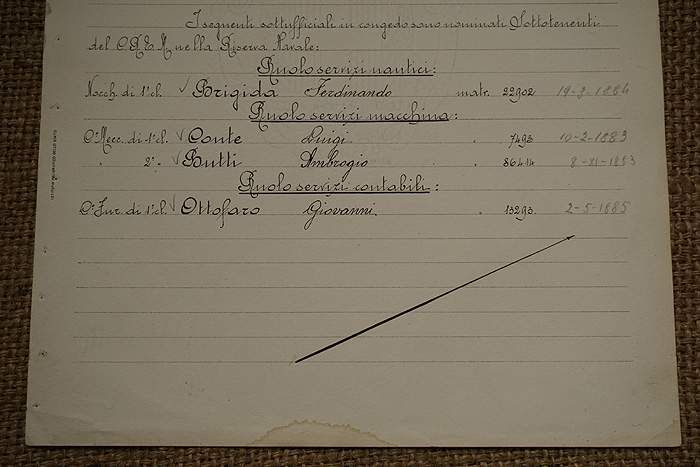 I seguenti sottufficiali in congedo sono nominati Sottotenenti
del C.R.E.M. nella Riserva Navale:
Ruolo servizi nautici:
Nocch. di 1ª cl. Brigida Ferdinando matr. 22902 19-3-1884
Ruolo servizi macchina:
Cº Mecc. di 1ª cl. Conte Luigi. " 7493 10-2-1883
" 2ª " Butti Ambrogio " 86414 8-XI-1883
Ruolo servizi contabili:
Cº Fur. di 1ª cl. Ottofaro Giovanni. " 13293 2-5-1885